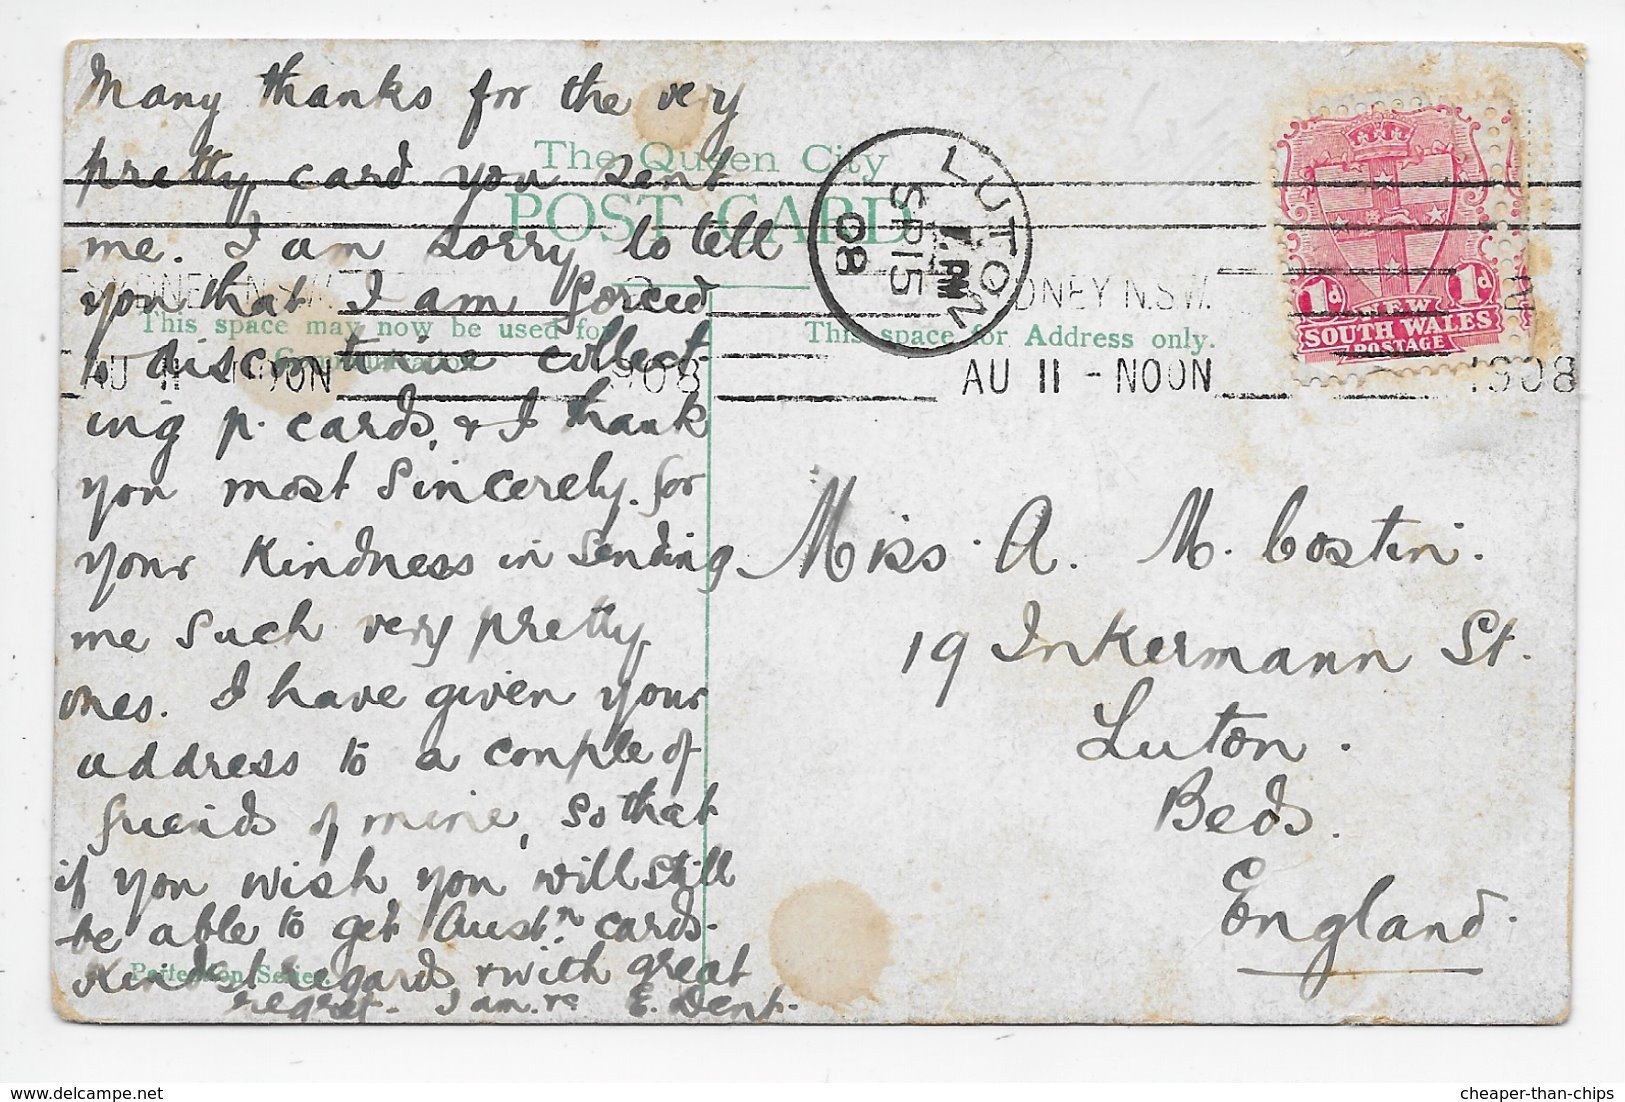 Many thanks for the very
pretty card you sent
me. I am sorry to tell
you that I am forced
to discontinue collect-
ing p. cards, & I thank
you most sincerely for
your kindness in sending
me such very pretty
ones. I have given your
address to a couple of
friends of mine, so that
if you wish you will still
be able to get Austn cards.
Kindest regards & with great
regret. I am. E. Dent.
The Queen City
POST CARD
This space may now be used for
Communication
This space for Address only.
Perfection Series.
LUTON
1. PM
SP 15
08
SYDNEY N.S.W.
AU 11 - NOON 1908
SYDNEY N.S.W.
AU 11 - NOON 1908
1d 1d
NEW
SOUTH WALES
POSTAGE
Miss. A. M. Costin.
19 Inkermann St.
Luton.
Beds.
England.
delcampe.net
cheaper-than-chips